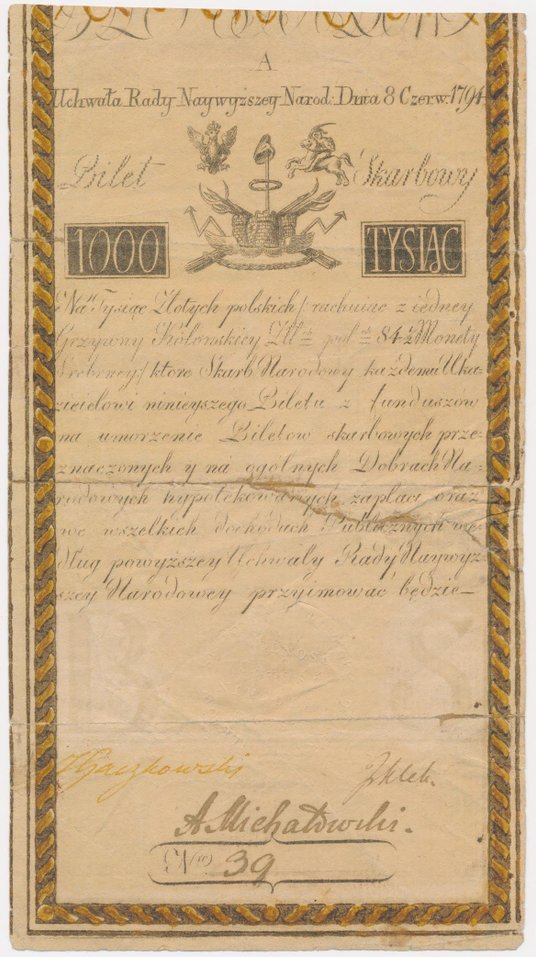 A
Uchwała Rady Naywyższey Narod: Dnia 8 Czerw. 1794
Bilet Skarbowy
1000 TYSIĄC
Na Tysiąc Złotych polskich / rachuiąc z iedney
Grzywny Kolonskiey Złł pol 84½ Monety
Srebrney / które Skarb Narodowy każdemu Uka-
zicielowi ninieyszego Biletu z funduszów
na umorzenie Biletow skarbowych prze-
znaczonych y na ogolnych Dobrach Na-
rodowych hypotekowanych zapłaci oraz
we wszelkich dochodach Publicznych we-
dług powyższey Uchwały Rady Naywyż-
szey Narodowey przyimować będzie
Gaczkowski
A Michałowski.
N 39